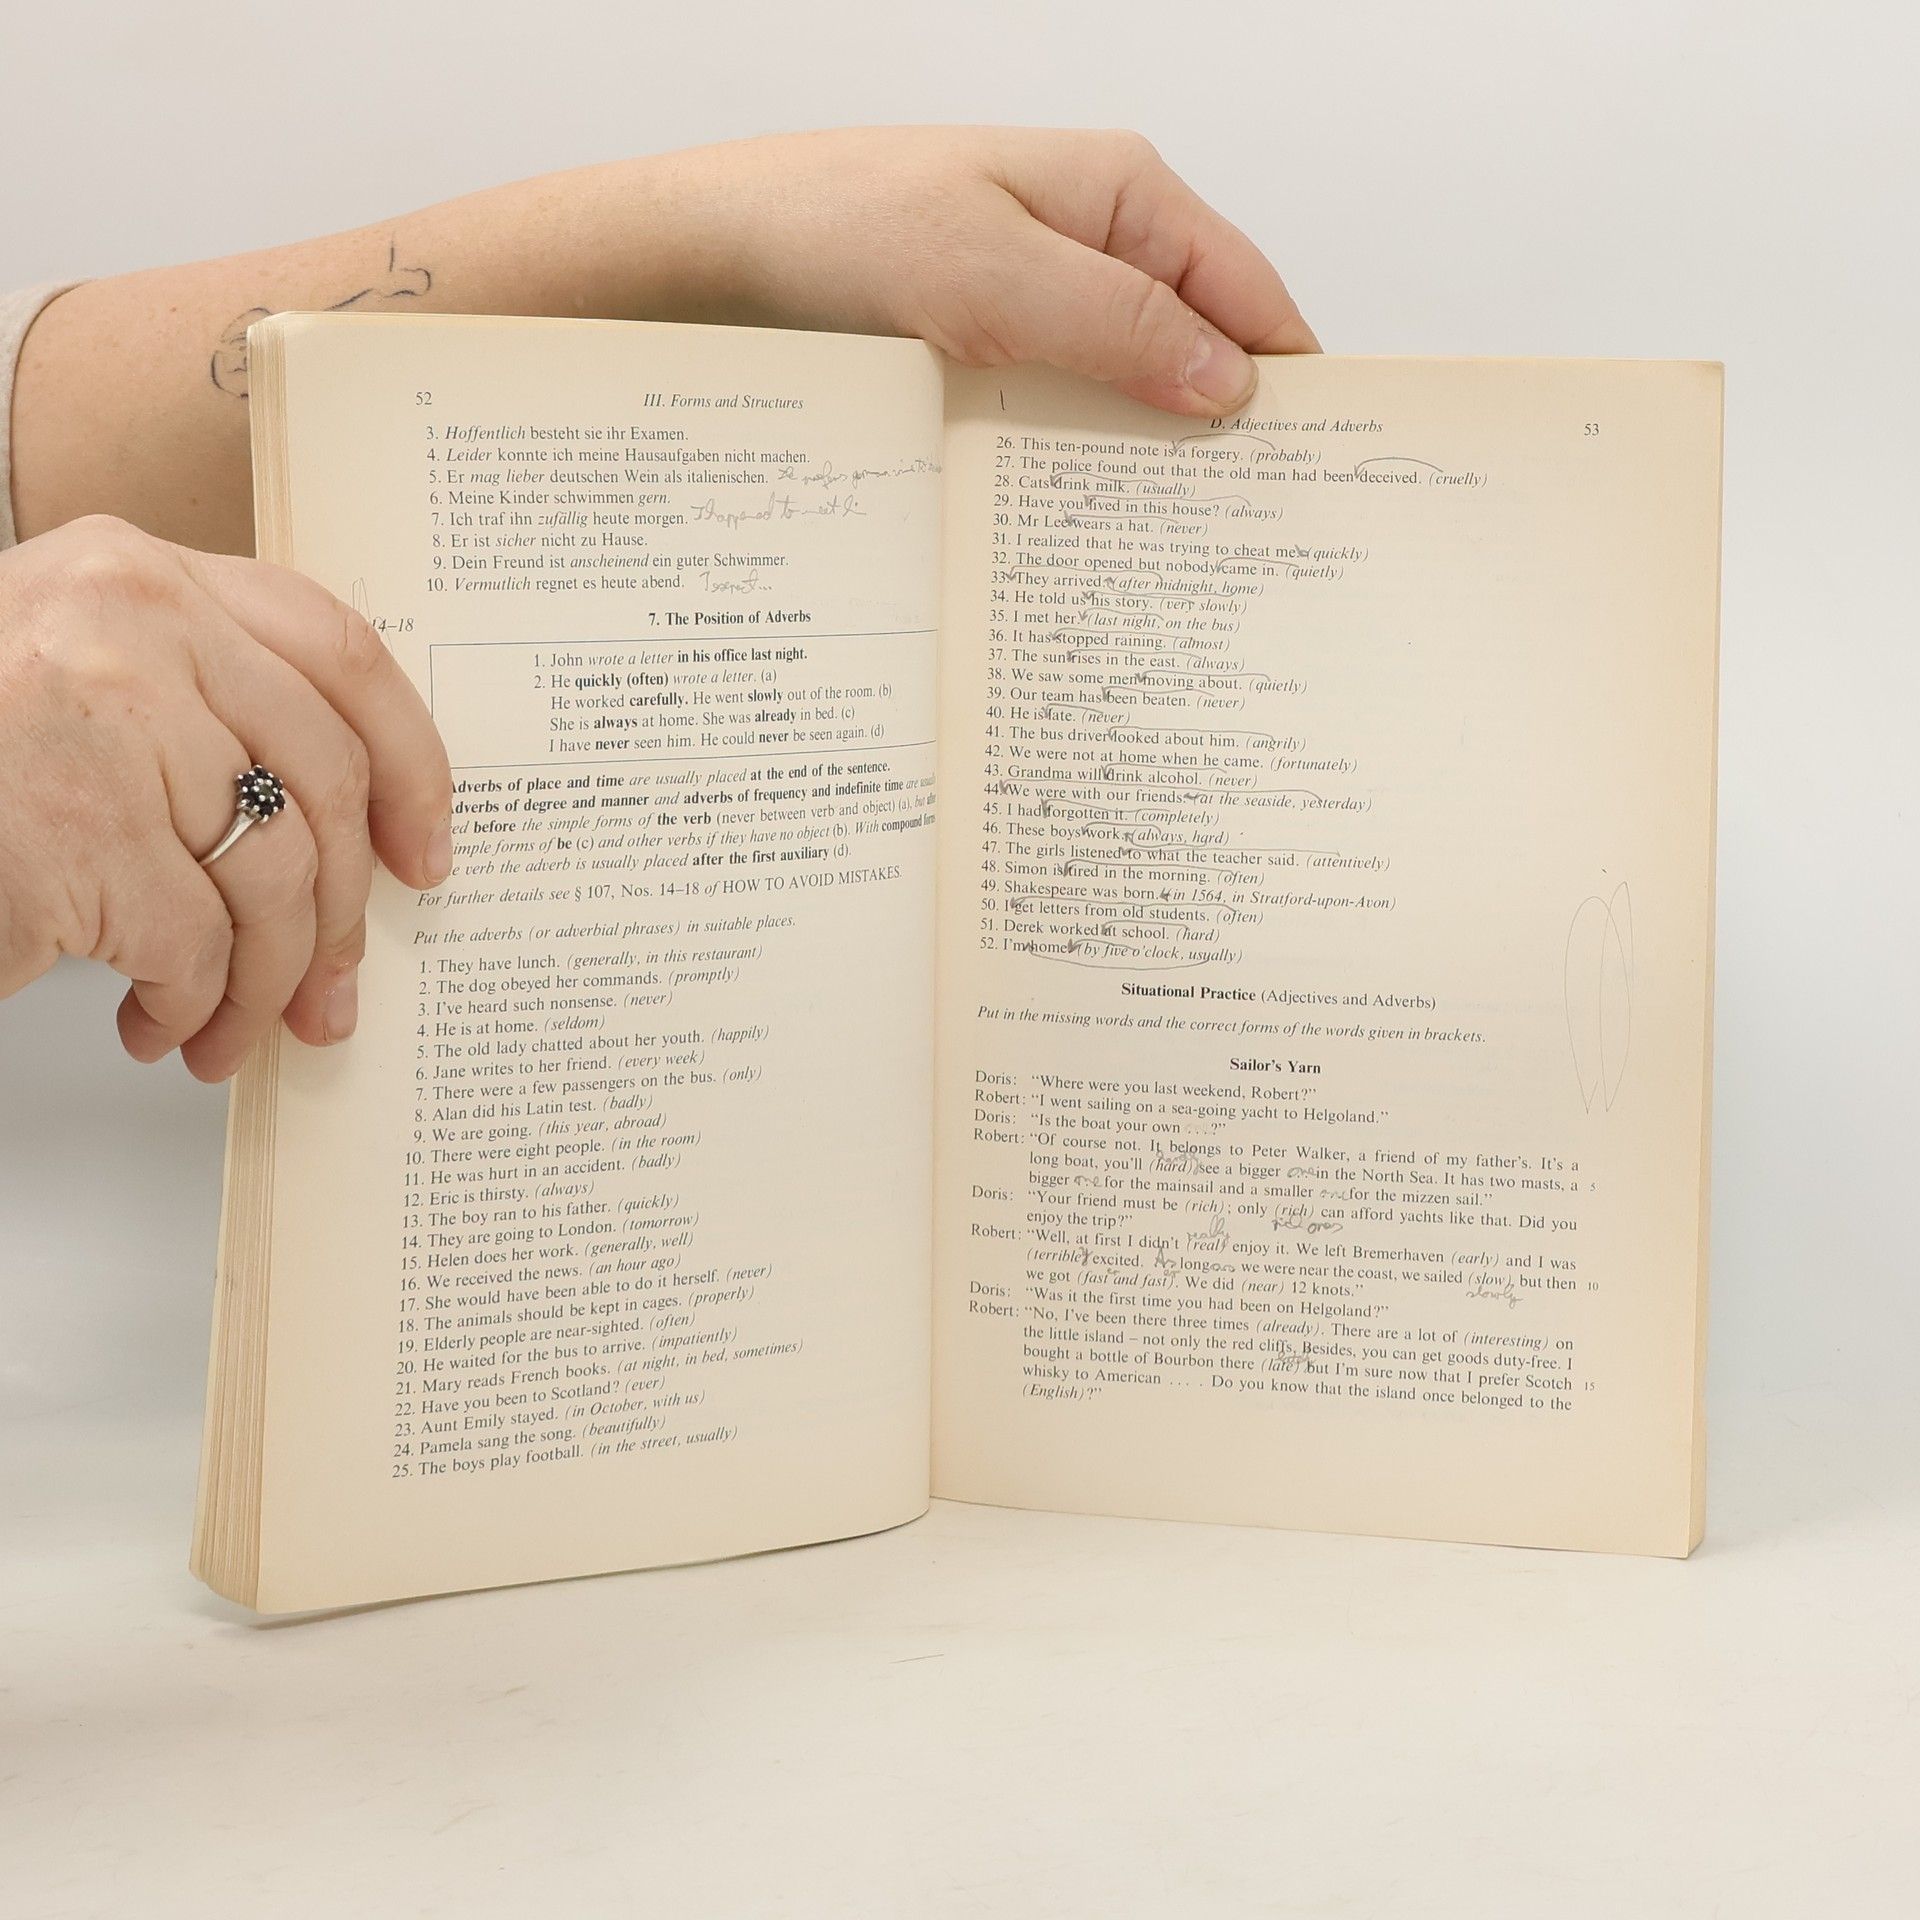 52
III. Forms and Structures
3. Hoffentlich besteht sie ihr Examen.
4. Leider konnte ich meine Hausaufgaben nicht machen.
5. Er mag lieber deutschen Wein als italienischen.
6. Meine Kinder schwimmen gern.
7. Ich traf ihn zufällig heute morgen. I happened to meet
8. Er ist sicher nicht zu Hause.
9. Dein Freund ist anscheinend ein guter Schwimmer.
10. Vermutlich regnet es heute abend.
14–18
7. The Position of Adverbs
1. John wrote a letter in his office last night.
2. He quickly (often) wrote a letter. (a)
He worked carefully. He went slowly out of the room. (b)
She is always at home. She was already in bed. (c)
I have never seen him. He could never be seen again. (d)
Adverbs of place and time are usually placed at the end of the sentence.
Adverbs of degree and manner and adverbs of frequency and indefinite time are
before the simple forms of the verb (never between verb and object) (a), but
forms of be (c) and other verbs if they have no object (b). With compound
verb the adverb is usually placed after the first auxiliary (d).
For further details see § 107, Nos. 14–18 of HOW TO AVOID MISTAKES.
Put the adverbs (or adverbial phrases) in suitable places.
1. They have lunch. (generally, in this restaurant)
2. The dog obeyed her commands. (promptly)
3. I've heard such nonsense. (never)
4. He is at home. (seldom)
5. The old lady chatted about her youth. (happily)
6. Jane writes to her friend. (every week)
7. There were a few passengers on the bus. (only)
8. Alan did his Latin test. (badly)
9. We are going. (this year, abroad)
10. There were eight people. (in the room)
11. He was hurt in an accident. (badly)
12. Eric is thirsty. (always)
13. The boy ran to his father. (quickly)
14. They are going to London. (tomorrow)
15. Helen does her work. (generally, well)
16. We received the news. (an hour ago)
17. She would have been able to do it herself. (never)
18. The animals should be kept in cages. (properly)
19. Elderly people are near-sighted. (often)
20. He waited for the bus to arrive. (impatiently)
21. Mary reads French books. (at night, in bed, sometimes)
22. Have you been to Scotland? (ever)
23. Aunt Emily stayed. (in October, with us)
24. Pamela sang the song. (beautifully)
25. The boys play football. (in the street, usually)
D. Adjectives and Adverbs
53
26. This ten-pound note is a forgery. (probably)
27. The police found out that the old man had been deceived. (cruelly)
28. Cats drink milk. (usually)
29. Have you lived in this house? (always)
30. Mr Lee wears a hat. (never)
31. I realized that he was trying to cheat me. (quickly)
32. The door opened but nobody came in. (quietly)
33. They arrived. (after midnight, home)
34. He told us his story. (very slowly)
35. I met her. (last night, on the bus)
36. It has stopped raining. (almost)
37. The sun rises in the east. (always)
38. We saw some men moving about. (quietly)
39. Our team has been beaten. (never)
40. He is late. (never)
41. The bus driver looked about him. (angrily)
42. We were not at home when he came. (fortunately)
43. Grandma will drink alcohol. (never)
44. We were with our friends. (at the seaside, yesterday)
45. I had forgotten it. (completely)
46. These boys work. (always, hard)
47. The girls listened to what the teacher said. (attentively)
48. Simon is tired in the morning. (often)
49. Shakespeare was born. (in 1564, in Stratford-upon-Avon)
50. I get letters from old students. (often)
51. Derek worked at school. (hard)
52. I'm home. (by five o'clock, usually)
Situational Practice (Adjectives and Adverbs)
Put in the missing words and the correct forms of the words given in brackets.
Sailor's Yarn
Doris: "Where were you last weekend, Robert?"
Robert: "I went sailing on a sea-going yacht to Helgoland."
Doris: "Is the boat your own ...?"
Robert: "Of course not. It belongs to Peter Walker, a friend of my father's. It's a
hardly
long boat, you'll (hard) see a bigger one in the North Sea. It has two masts, a 5
bigger one for the mainsail and a smaller one for the mizzen sail."
Doris: "Your friend must be (rich); only (rich) can afford yachts like that. Did you
enjoy the trip?" really rich ones
Robert: "Well, at first I didn't (real) enjoy it. We left Bremerhaven (early) and I was
(terrible) y excited. As long as we were near the coast, we sailed (slow), but then 10
we got (fast and fast). We did (near) 12 knots." slowly
Doris: "Was it the first time you had been on Helgoland?"
Robert: "No, I've been there three times (already). There are a lot of (interesting) on
the little island – not only the red cliffs. Besides, you can get goods duty-free. I
bought a bottle of Bourbon there (late) but I'm sure now that I prefer Scotch 15
whisky to American .... Do you know that the island once belonged to the
(English)?"